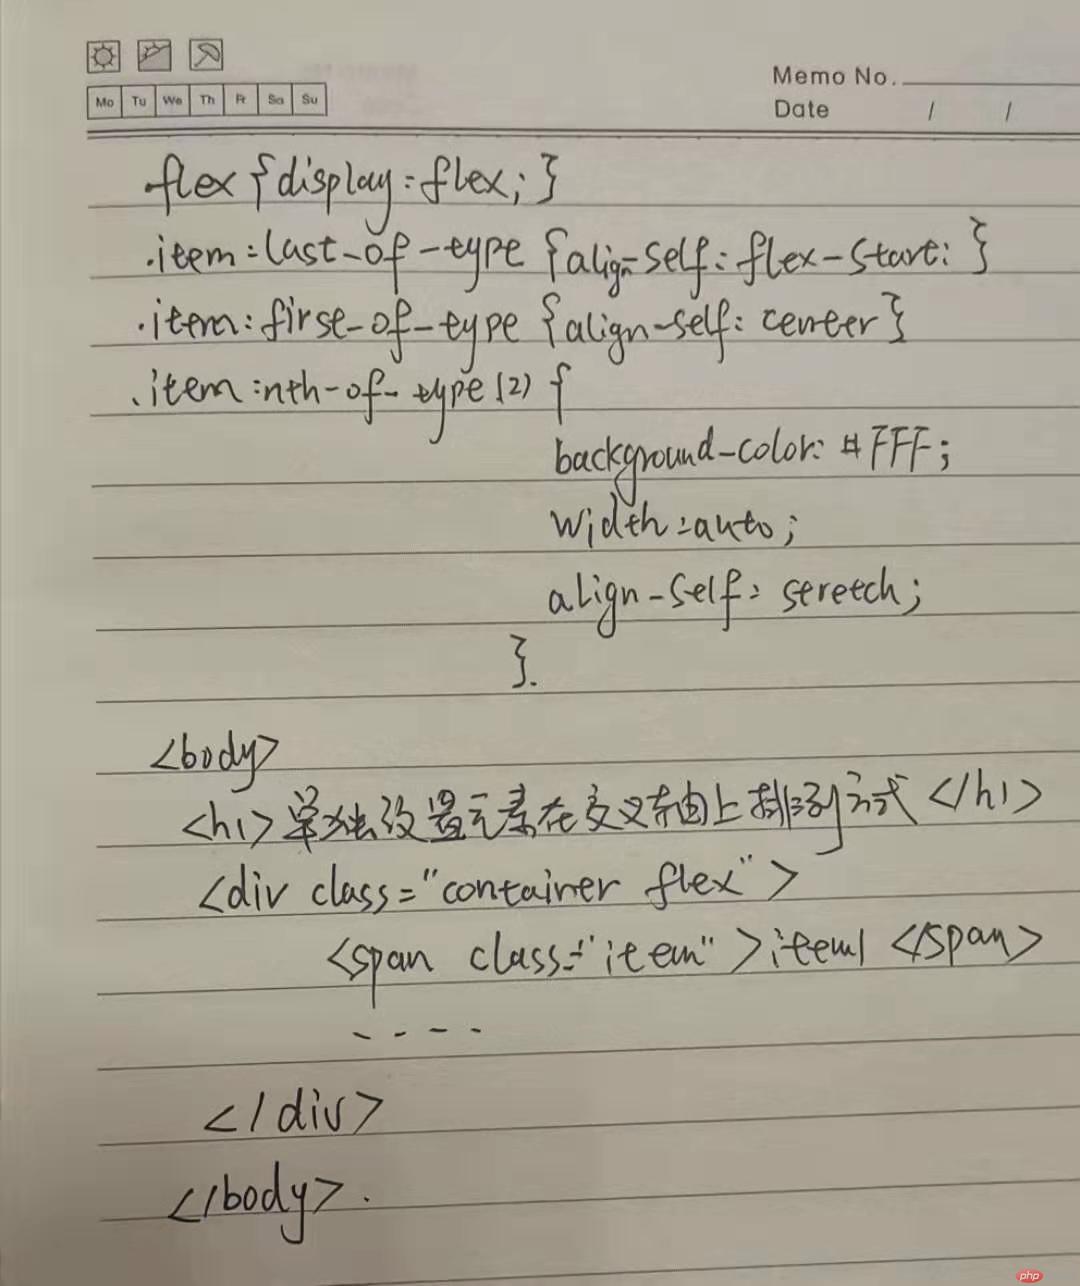 Memo No.
Mo Tu We Th Fr Sa Su
Date / /
.flex {display:flex;}
.item:last-of-type {align-self:flex-start; }
.item:firse-of-type {align-self: center}
.item:nth-of-type(2) {
background-color: #FFF;
width:auto;
align-self: stretch;
}.
<body>
<h1>单独设置元素在交叉轴上排列方式</h1>
<div class="container flex">
<span class="item">item1</span>
----
</div>
</body>.
php